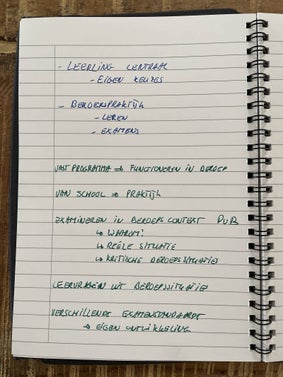 - LEERLING CENTRAAL
- EIGEN KEUZES
- BEROEPSPRAKTIJK
- LEREN
- EXAMENS
VAST PROGRAMMA ⇒ FUNCTIONEREN IN BEROEP
VAN SCHOOL ⇒ PRAKTIJK
EXAMINEREN IN BEROEPS CONTEXT PVB
↳ WAAROM?
↳ REËLE SITUATIE
↳ KRITISCHE BEROEPSSITUATIE
LEERVRAGEN UIT BEROEPSSITUATIE
VERSCHILLENDE EXAMENSTANDAARDEN
→ EIGEN ONTWIKKELING